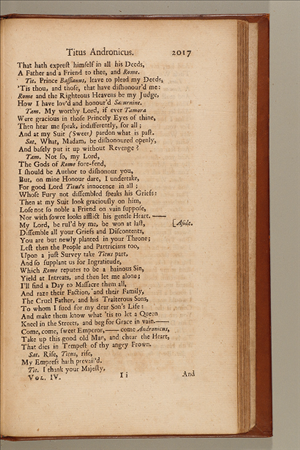 Titus Andronicus. 2017
That hath exprest himself in all his Deeds,
A Father and a Friend to thee, and Rome.
Tit. Prince Bassianus, leave to plead my Deeds,
'Tis thou, and those, that have dishonour'd me:
Rome and the Righteous Heavens be my Judge,
How I have lov'd and honour'd Saturnine.
Tam. My worthy Lord, if ever Tamora
Were gracious in those Princely Eyes of thine,
Then hear me speak, indifferently, for all;
And at my Suit (Sweet) pardon what is past.
Sat. What, Madam, be dishonoured openly,
And basely put it up without Revenge?
Tam. Not so, my Lord,
The Gods of Rome fore-fend,
I should be Author to dishonour you,
But, on mine Honour dare, I undertake,
For good Lord Titus's innocence in all;
Whose Fury not dissembled speaks his Griefs:
Then at my Suit look graciously on him,
Lose not so noble a Friend on vain suppose,
Nor with sowre looks afflict his gentle Heart. —
My Lord, be rul'd by me, be won at last, [Aside.
Dissemble all your Griefs and Discontents,
You are but newly planted in your Throne;
Lest then the People and Patricians too,
Upon a just Survey take Titus part,
And so supplant us for Ingratitude,
Which Rome reputes to be a hainous Sin,
Yield at Intreats, and then let me alone;
I'll find a Day to Massacre them all,
And raze their Faction, and their Family,
The Cruel Father, and his Traiterous Sons,
To whom I sued for my dear Son's Life:
And make them know what 'tis to let a Queen
Kneel in the Streets, and beg for Grace in vain. —
Come, come, sweet Emperor, — come Andronicus,
Take up this good old Man, and chear the Heart,
That dies in Tempest of thy angry Frown.
Sat. Rise, Titus, rise,
My Empress hath prevail'd.
Tit. I thank your Majesty,
VOL. IV. I i And